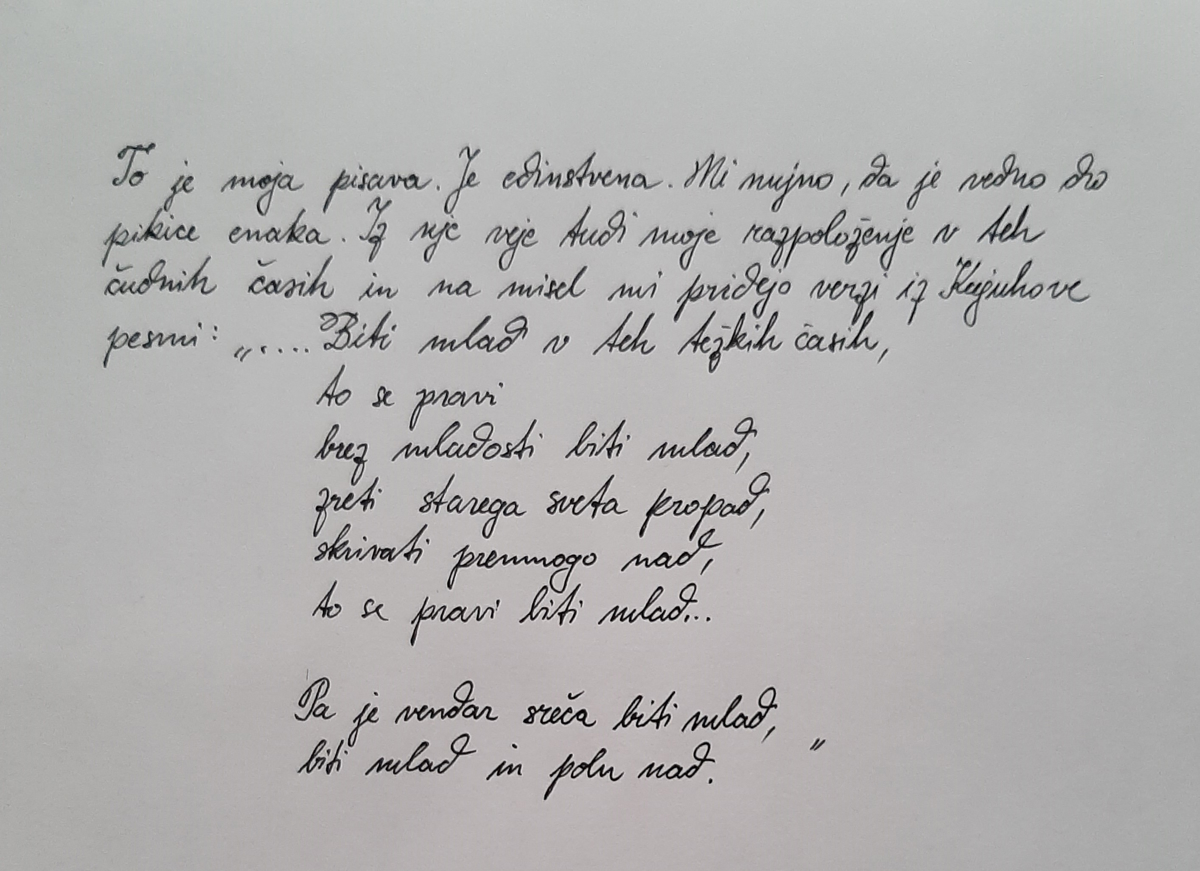 To je moja pisava. Je edinstvena. Ni nujno, da je vedno do
pikice enaka. Iz nje veje tudi moje razpoloženje v teh
čudnih časih in na misel mi pridejo verzi iz Kajuhove
pesmi: „.... Biti mlad v teh težkih časih,
to se pravi
brez mladosti biti mlad,
zreti starega sveta propad,
skrivati premnogo nad,
to se pravi biti mlad...
Pa je vendar sreča biti mlad,
biti mlad in poln nad. "